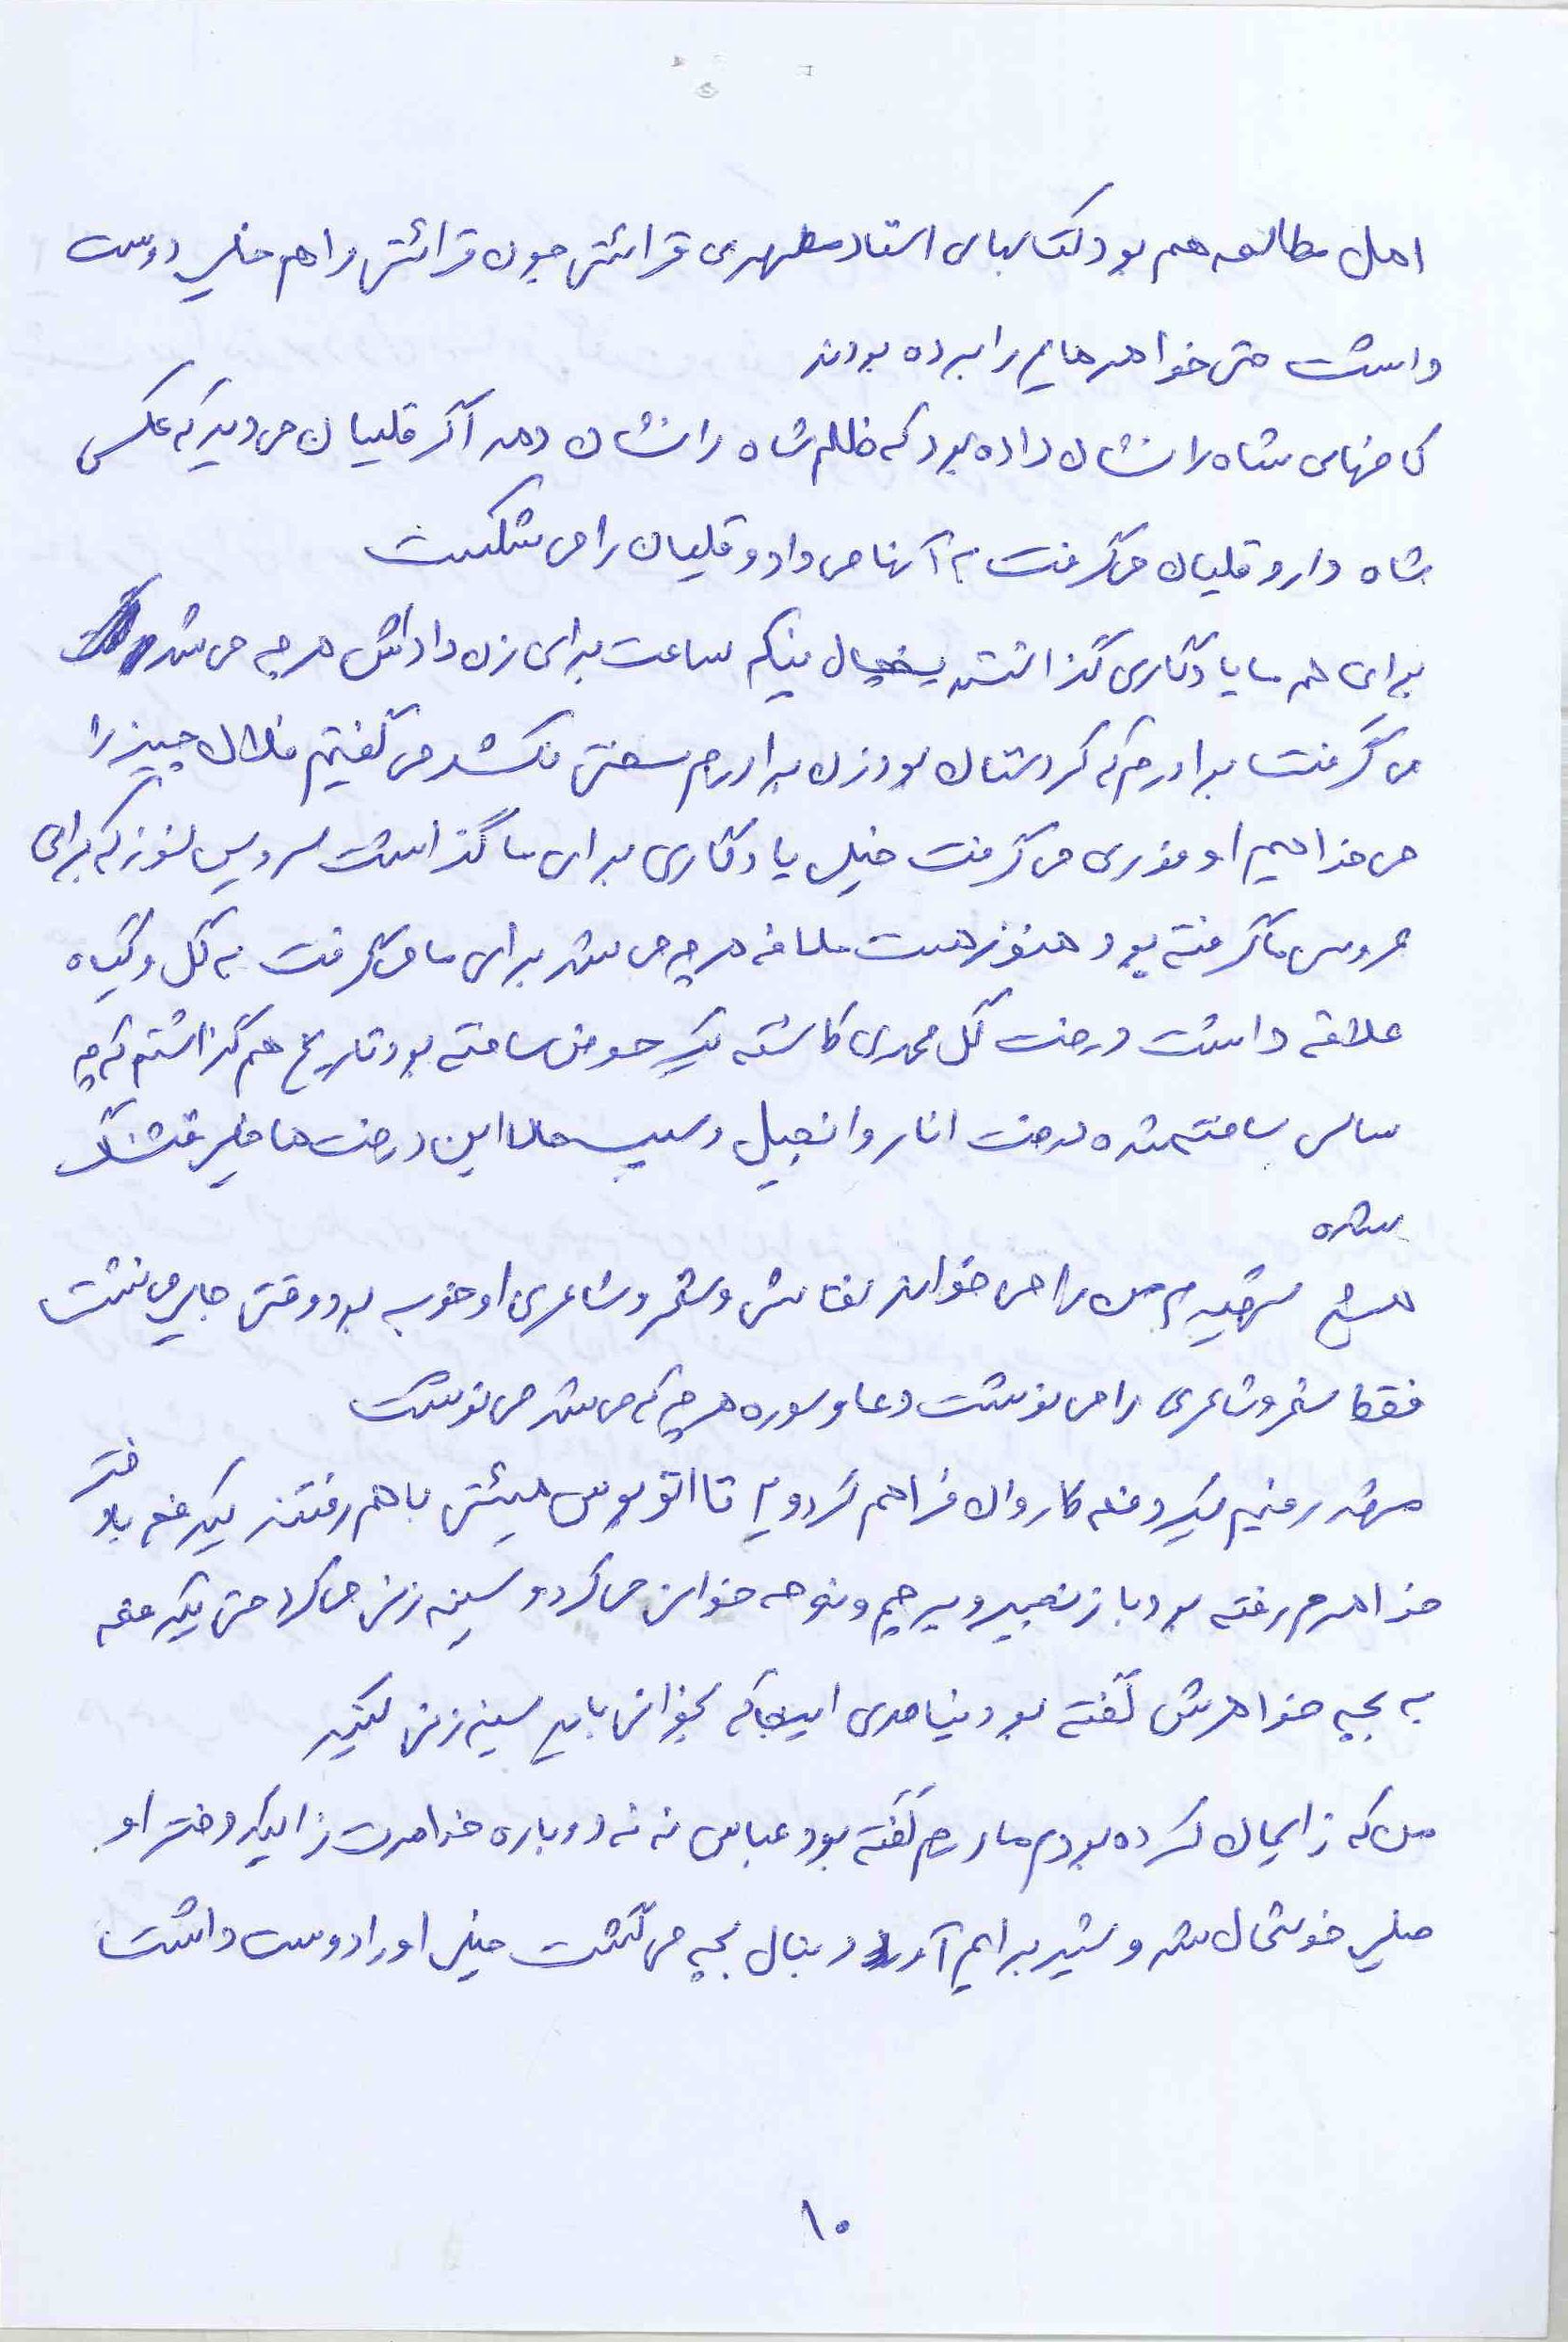 اهل مطالعه هم بود کتابهای استاد مطهری قرائتی چون قرائتی را هم خیلی دوست
داشت حتی خواهرهایم را برده بودند
کاخهای شاه را نشان داده بود که ظلم شاه را نشان دهد اگر قلیان می دید که عکس
شاه دارد قلیان می گرفت به آنها می داد و قلیان را می شکست
برای همه ما یادگاری گذاشته یخچال پنکه ساعت برای زن داداش هر چه می شد
می گرفت برادرم که کردستان بود زن برادرم سختی نکشد می گفتیم فلان چیز را
می خواهیم او فوری می گرفت خیلی یادگاری برای ما گذاشت سرویس لوز که برای
عروس ما گرفته بود هنوز هست ملافه هر چه می شد برای ما می گرفت به گل و گیاه
علاقه داشت درخت گل محمدی کاشته یک حوض ساخته بود تاریخ هم گذاشتم که چه
سالی ساخته شده درخت انار و انجیل و سیب حالا این درخت ها خیلی قشنگ
شده
همش را می خواند نقاشی و شعر و شاعری او خوب بود وقتی جایی می نشت
فقط شعر و شاعری را می نوشت دعا و سوره هر چه که می شد می نوشت
مشهد رفتیم یک دفعه کاروان فراهم کردو تا اتوبوس هیئتی با هم رفتند یک دفعه با دختر
خواهرم رفته بود با زنجیر و پرچم و نوحه خوانی می کرد و سینه زنی می کرد حتی یک دفعه
به بچه خواهرش گفته بود نیامدی اینجا که بخوابی باید سینه زنی بکنید
من که زایمان کرده بودم مادرم گفته بود عباس نه نه دوباره خواهرت زایید دختر او
خیلی خوشحال شد و شیر برایم آورد دنبال بچه می گشت خیلی او را دوست داشت
۱۰